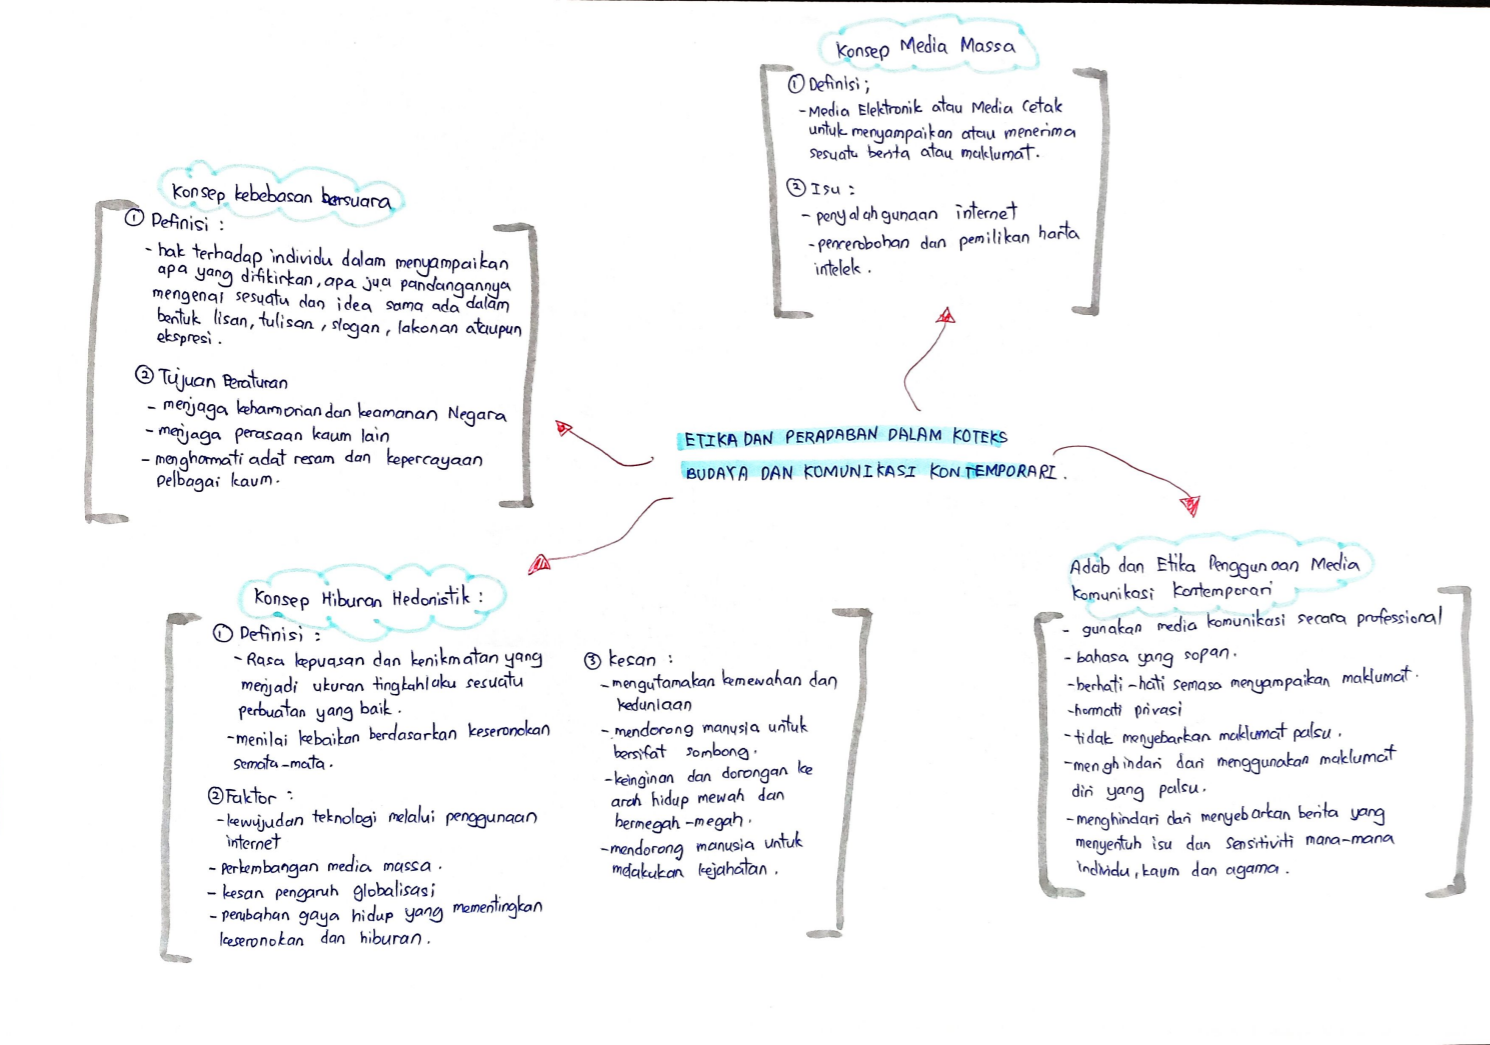 Konsep Media Massa
① Definisi;
- Media Elektronik atau Media Cetak
untuk menyampaikan atau menerima
sesuatu berita atau maklumat.
② Isu :
- penyalahgunaan internet
- pencerobohan dan pemilikan harta
intelek.
Konsep kebebasan bersuara
① Definisi :
- hak terhadap individu dalam menyampaikan
apa yang difikirkan, apa jua pandangannya
mengenai sesuatu dan idea sama ada dalam
bentuk lisan, tulisan, slogan, lakonan ataupun
ekspresi.
② Tujuan Peraturan
- menjaga keharmonian dan keamanan Negara
- menjaga perasaan kaum lain
- menghormati adat resam dan kepercayaan
pelbagai kaum.
ETIKA DAN PERADABAN DALAM KOTEKS
BUDAYA DAN KOMUNIKASI KONTEMPORARI.
Konsep Hiburan Hedonistik :
① Definisi :
- Rasa kepuasan dan kenikmatan yang
menjadi ukuran tingkahlaku sesuatu
perbuatan yang baik.
- menilai kebaikan berdasarkan keseronokan
semata-mata.
② Faktor :
- kewujudan teknologi melalui penggunaan
internet
- perkembangan media massa.
- kesan pengaruh globalisasi
- perubahan gaya hidup yang mementingkan
keseronokan dan hiburan.
③ kesan :
- mengutamakan kemewahan dan
keduniaan
- mendorong manusia untuk
bersifat sombong.
- keinginan dan dorongan ke
arah hidup mewah dan
bermegah-megah.
- mendorong manusia untuk
melakukan kejahatan.
Adab dan Etika Penggunaan Media
Komunikasi Kontemporari
- gunakan media komunikasi secara professional
- bahasa yang sopan.
- berhati-hati semasa menyampaikan maklumat.
- hormati privasi
- tidak menyebarkan maklumat palsu.
- menghindari dari menggunakan maklumat
diri yang palsu.
- menghindari dari menyebarkan berita yang
menyentuh isu dan sensitiviti mana-mana
individu, kaum dan agama.